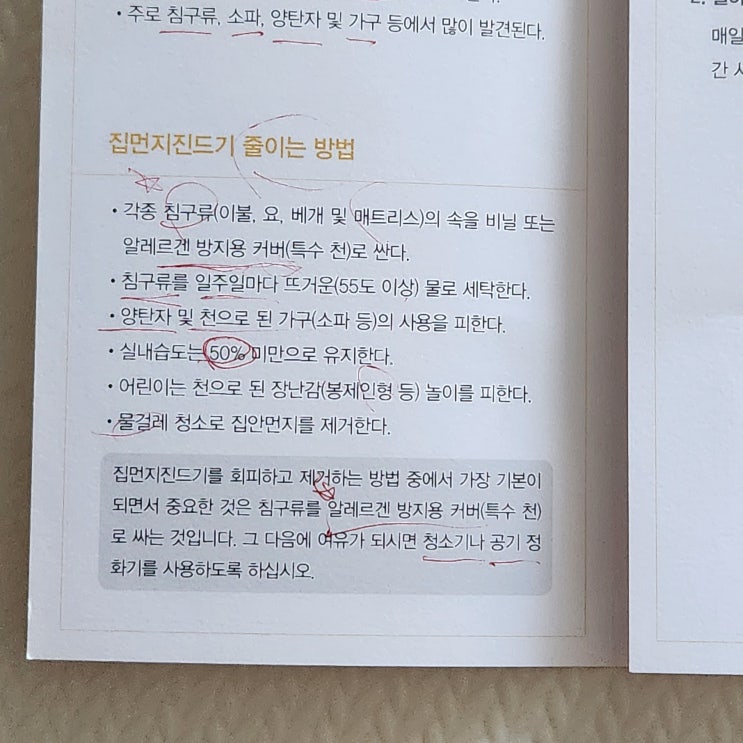 • 주로 침구류, 소파, 양탄자 및 가구 등에서 많이 발견된다.
집먼지진드기 줄이는 방법
• 각종 침구류(이불, 요, 베개 및 매트리스)의 속을 비닐 또는
알레르겐 방지용 커버(특수 천)로 싼다.
• 침구류를 일주일마다 뜨거운(55도 이상) 물로 세탁한다.
• 양탄자 및 천으로 된 가구(소파 등)의 사용을 피한다.
• 실내습도는 50% 미만으로 유지한다.
• 어린이는 천으로 된 장난감(봉제인형 등) 놀이를 피한다.
• 물걸레 청소로 집안먼지를 제거한다.
집먼지진드기를 회피하고 제거하는 방법 중에서 가장 기본이
되면서 중요한 것은 침구류를 알레르겐 방지용 커버(특수 천)
로 싸는 것입니다. 그 다음에 여유가 되시면 청소기나 공기 정
화기를 사용하도록 하십시오.
매일
간